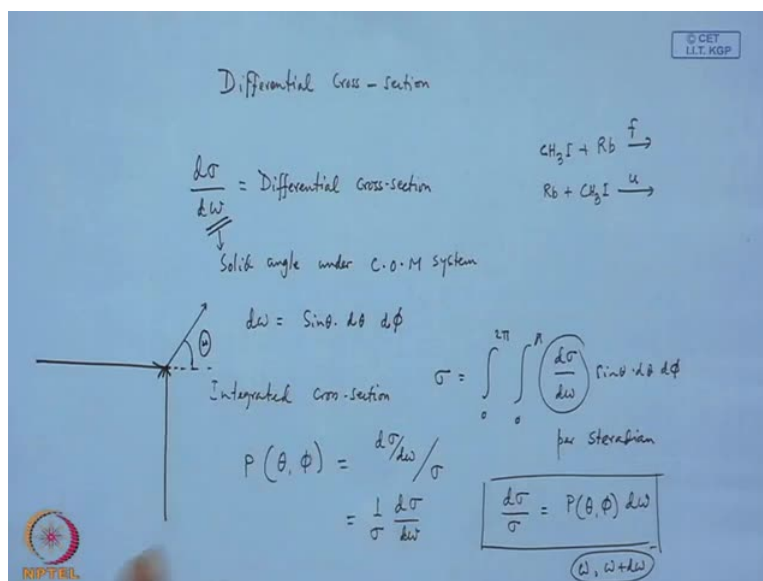 © CET
I.I.T. KGP
Differential Cross-section
CH₃I + Rb →f
Rb + CH₃I →u
dσ/dω = Differential Cross-section
Solid angle under C.O.M system
dω = Sinθ · dθ dϕ
Θ
Integrated cross-section
σ = ∫₀^2π ∫₀^π (dσ/dω) Sinθ · dθ dϕ
per Steradian
P(θ, ϕ) = dσ/dω / σ
= 1/σ dσ/dω
dσ/σ = P(θ, ϕ) dω
ω, ω+dω
NPTEL